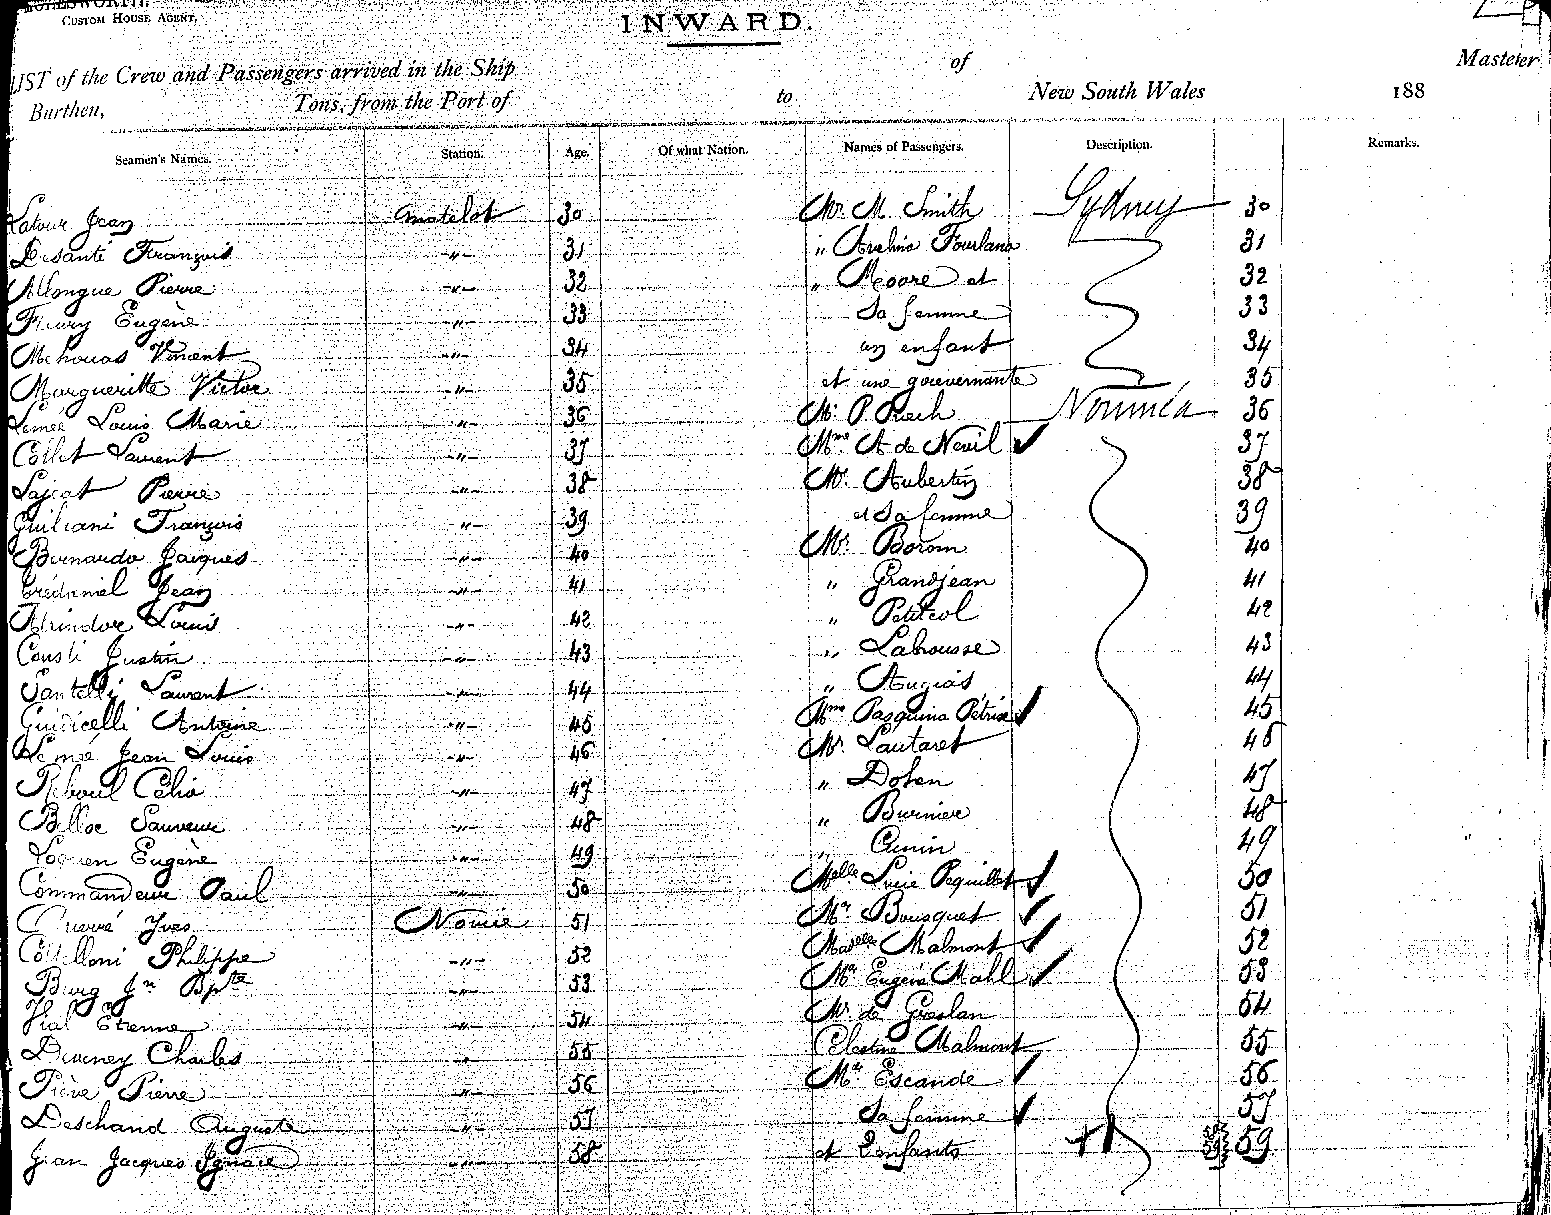 CUSTOM HOUSE AGENT,
INWARD.
LIST of the Crew and Passengers arrived in the Ship of Master
Burthen, Tons, from the Port of to New South Wales 188
Seamen's Names. Station. Age. Of what Nation. Names of Passengers. Description. Remarks.
Latour Jean matelot 30 Mr. M. Smith Sydney 30
Desanti François -"- 31 " Avelino Fourlano 31
Allongue Pierre -"- 32 " Moore et 32
Fleury Eugène -"- 33 Sa femme 33
Mehouas Vincent -"- 34 un enfant 34
Margueritte Victor -"- 35 et une gouvernante 35
Lemée Louis Marie -"- 36 Mr P. Rech Nouméa 36
Collet Laurent -"- 37 Mme A de Nevil 37
Pierre -"- 38 Mr. Aubertin 38
Guiliani François -"- 39 et Sa femme 39
Bernardo Jacques -"- 40 Mr. Borom 40
Trédaniel Jean -"- 41 " Grandjean 41
Louis -"- 42 " Petitcol 42
Consti Justin -"- 43 " Labrousse 43
Santelli Laurent -"- 44 " Augias 44
Guidicelli Antoine -"- 45 Mme Pasquina Pétrise 45
Lemée Jean Louis -"- 46 Mr. Lautaret 46
Reboul Célia -"- 47 " Doten 47
Belloc Sauveur -"- 48 " Burnier 48
Eugène -"- 49 " Cunin 49
Commandeur Paul -"- 50 Melle Lucie Pequillet 50
Yves Novice 51 Mr Bousquet 51
Philippe -"- 52 Madelle Malmont 52
Burg Jn Bpte -"- 53 Mr Eugène Mahl 53
Vial Etienne -"- 54 Mr. de Greslan 54
Charles -"- 55 Celestine Malmont 55
Piève Pierre -"- 56 Mr Escande 56
Deschand Auguste -"- 57 Sa femme 57
Jean Jacques Ignace -"- 58 et 2 enfants 59